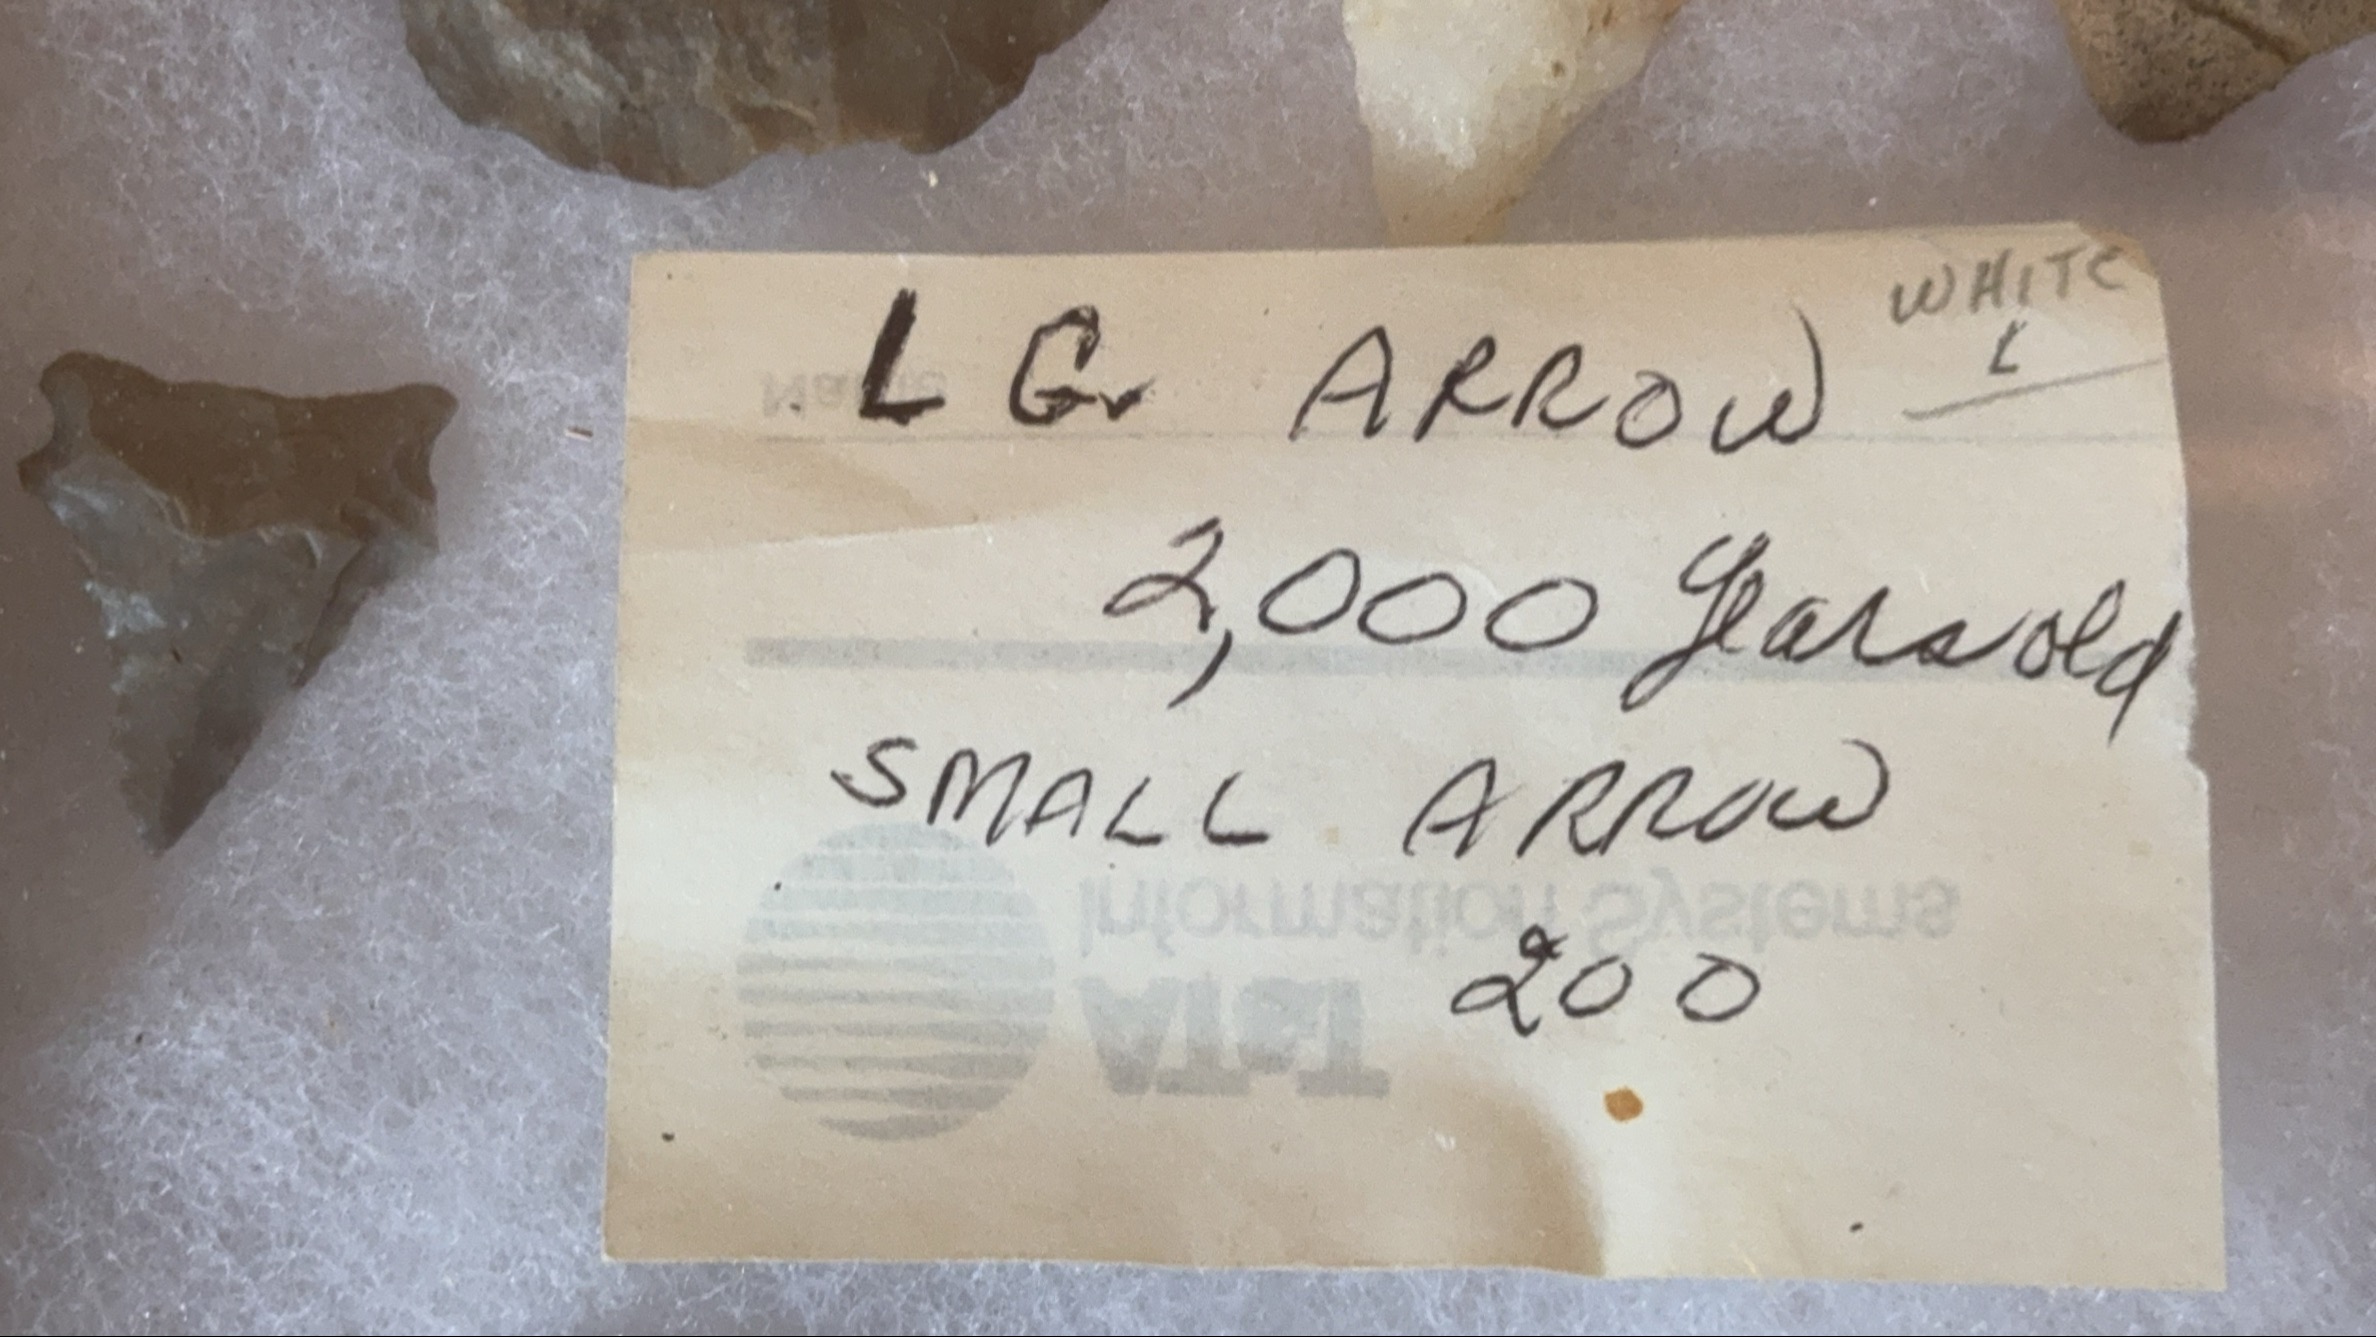 WHITE
LG. ARROW
2,000 years old
SMALL ARROW
200
Name
Information Systems
AT&T